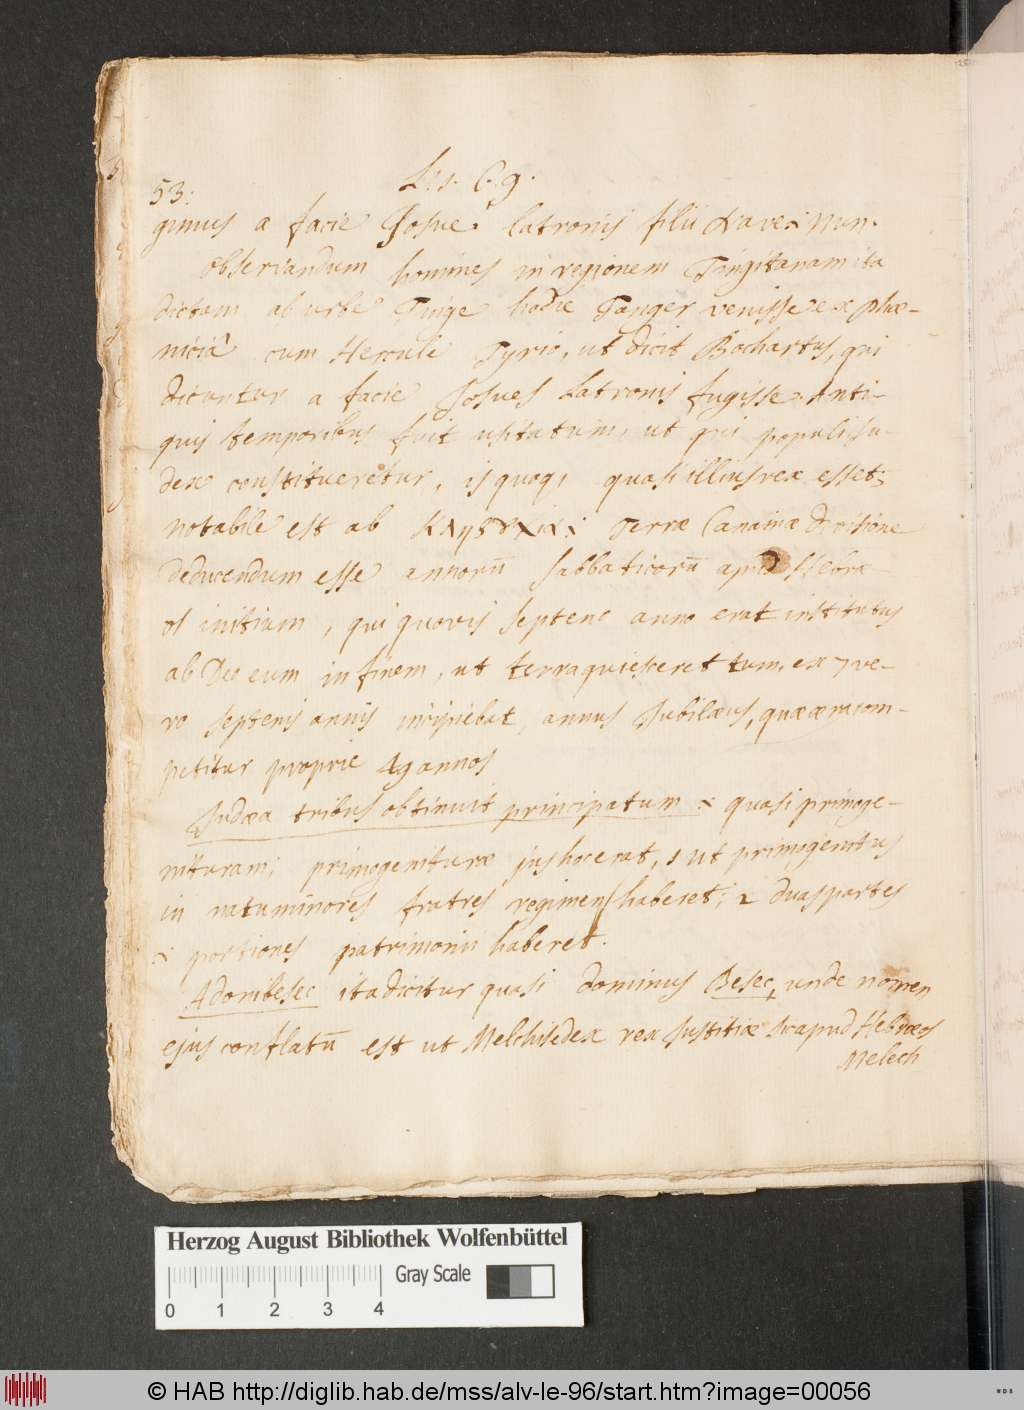 53: L. 1. C. 9.
gimus a facie Josue latronis filii Nave: Nun.
Observandum homines in regionem Tingitanam ita
dictam ab urbe Tinge hodie Tanger venisse ex Phœ-
niciâ cum Hercule Tyrio, ut dicit Bochartus, qui
dicuntur a facie Josues Latronis fugisse. Anti-
quis temporibus fuit usitatum, ut qui populi Ju-
dex constitueretur, is quoq, quasi illius rex esset;
notabile est ab Terræ Cananææ divisione
deducendum esse annorū sabbaticorū apud Hebræ-
os initium, qui quovis septeno anno erat institutus
ab Deo eum in finem, ut terra quiesceret tum. ex 7 ve-
ro septenis annis incipiebat, annus Jubilæus, quæ æra com-
petitur proprie 49 annos
Judæa tribus obtinuit principatum : quasi primoge-
nituram; primogenituræ jus hoc erat, 1 ut primogenitus
in natu minores fratres regimen haberet; 2 duas partes
: portiones patrimonii haberet.
Adonibesec ita dicitur quasi dominus Besec, unde nomen
ejus conflatū est ut Melchisedex rex Justitiæ apud Hebræos
Melech
Herzog August Bibliothek Wolfenbüttel
Gray Scale
0 1 2 3 4
© HAB http://diglib.hab.de/mss/alv-le-96/start.htm?image=00056